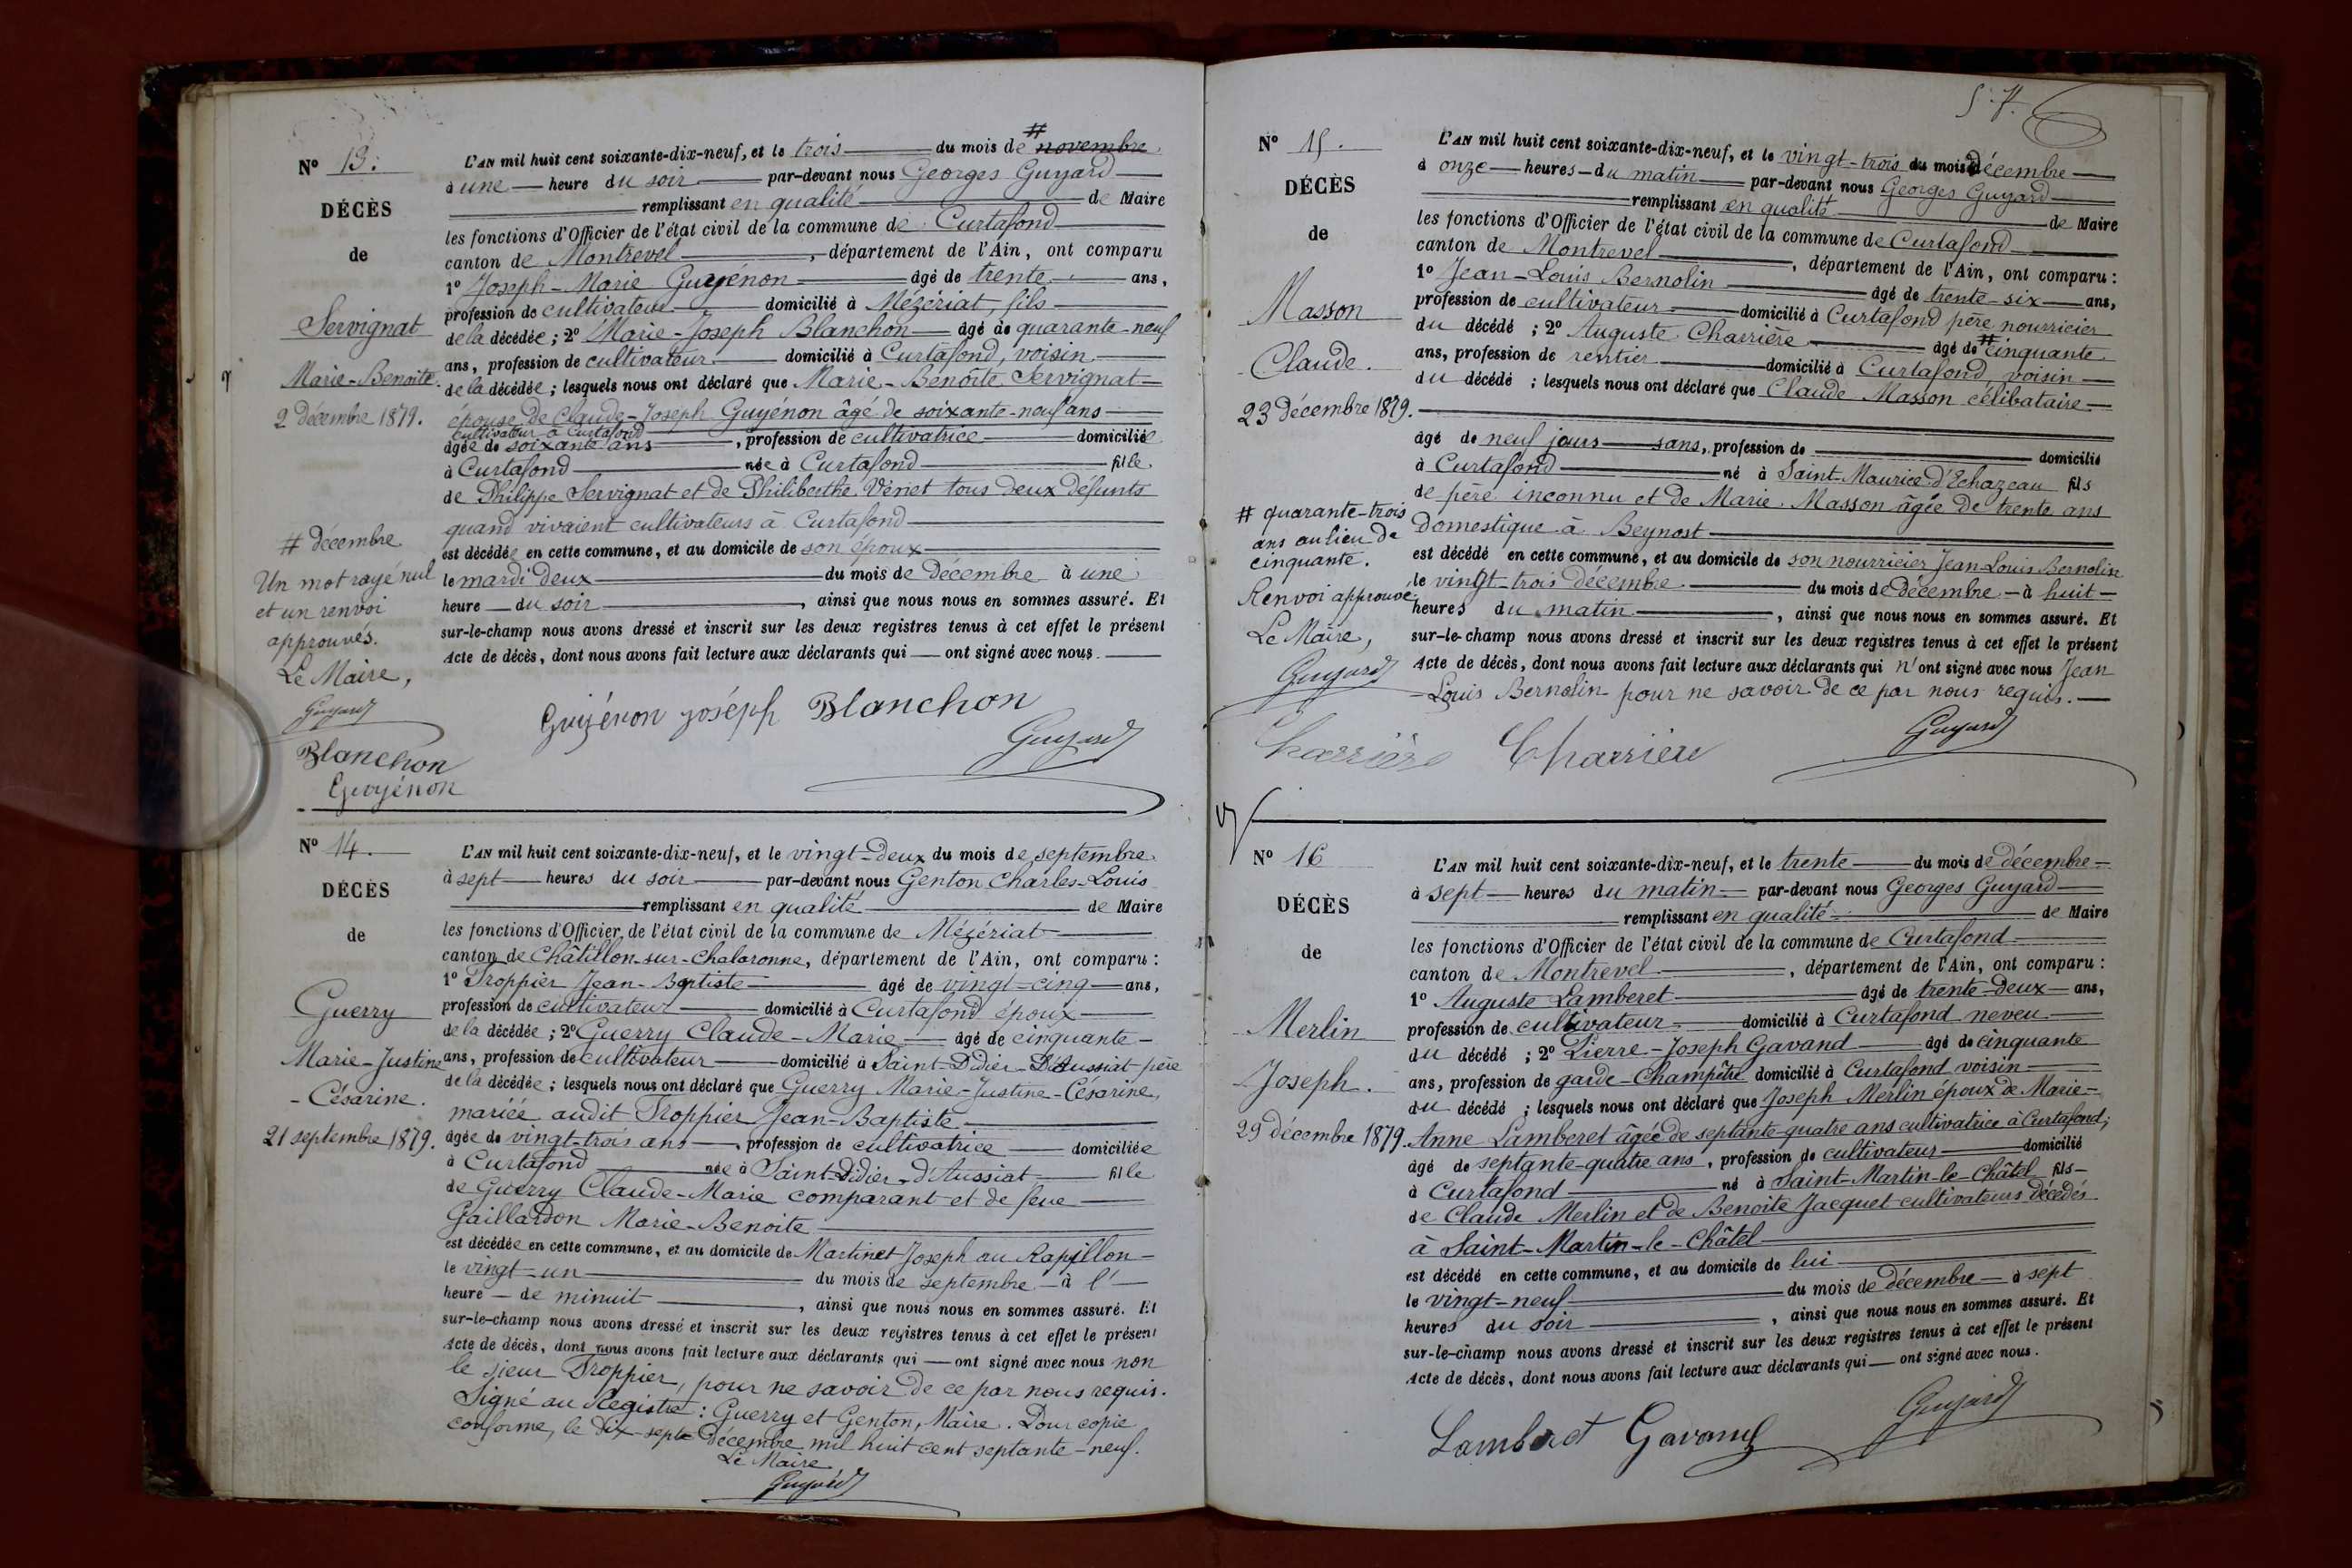 N° 13.
DÉCÈS
de
Servignat
Marie-Benoite.
2 décembre 1879.
# décembre
Un mot rayé nul
et un renvoi
approuvés.
Le Maire,
Guyard
Blanchon
Guyénon
L'AN mil huit cent soixante-dix-neuf, et le trois du mois de # novembre
à une heure du soir par-devant nous Georges Guyard
remplissant en qualité de Maire
les fonctions d'Officier de l'état civil de la commune de Curtafond
canton de Montrevel, département de l'Ain, ont comparu
1° Joseph-Marie Guyénon âgé de trente ans,
profession de cultivateur domicilié à Mézériat, fils
de la décédée; 2° Marie-Joseph Blanchon âgé de quarante-neuf
ans, profession de cultivateur domicilié à Curtafond, voisin
de la décédée; lesquels nous ont déclaré que Marie-Benoîte Servignat
épouse de Claude-Joseph Guyénon âgé de soixante-neuf ans
cultivateur à Curtafond
âgée de soixante ans, profession de cultivatrice domiciliée
à Curtafond née à Curtafond fille
de Philippe Servignat et de Philiberthe Veriet tous deux défunts
quand vivaient cultivateurs à Curtafond
est décédée en cette commune, et au domicile de son époux
le mardi deux du mois de Décembre à une
heure du soir, ainsi que nous nous en sommes assuré. Et
sur-le-champ nous avons dressé et inscrit sur les deux registres tenus à cet effet le présent
Acte de décès, dont nous avons fait lecture aux déclarants qui ont signé avec nous.
Guyénon joséph Blanchon
Guyard
N° 14.
DÉCÈS
de
Guerry
Marie-Justine
-Césarine.
21 septembre 1879.
L'AN mil huit cent soixante-dix-neuf, et le vingt-deux du mois de septembre
à sept heures du soir par-devant nous Genton Charles-Louis
remplissant en qualité de Maire
les fonctions d'Officier de l'état civil de la commune de Mézériat
canton de Châtillon-sur-Chalaronne, département de l'Ain, ont comparu:
1° Troppier Jean-Baptiste âgé de vingt-cinq ans,
profession de cultivateur domicilié à Curtafond époux
de la décédée; 2° Guerry Claude-Marie âgé de cinquante-
ans, profession de cultivateur domicilié à Saint-Didier-D'Aussiat père
de la décédée; lesquels nous ont déclaré que Guerry Marie-Justine-Césarine,
mariée audit Troppier Jean-Baptiste
âgée de vingt-trois ans, profession de cultivatrice domiciliée
à Curtafond née à Saint-Didier-d'Aussiat fille
de Guerry Claude-Marie comparant et de feue
Gaillardon Marie-Benoite
est décédée en cette commune, et au domicile de Martinet Joseph au Rapillon
le vingt-un du mois de septembre à l'
heure de minuit, ainsi que nous nous en sommes assuré. Et
sur-le-champ nous avons dressé et inscrit sur les deux registres tenus à cet effet le présent
Acte de décès, dont nous avons fait lecture aux déclarants qui ont signé avec nous non
le sieur Troppier, pour ne savoir de ce par nous requis.
Signé au Registre: Guerry et Genton, Maire. Pour copie
conforme, le dix-sept décembre mil huit cent septante-neuf.
Le Maire
Guyard
N° 15.
DÉCÈS
de
Masson
Claude.
23 décembre 1879.
# quarante-trois
ans au lieu de
cinquante.
Renvoi approuvé
Le Maire,
Guyard
Charrière
L'AN mil huit cent soixante-dix-neuf, et le vingt-trois du mois de décembre
à onze heures du matin par-devant nous Georges Guyard
remplissant en qualité de Maire
les fonctions d'Officier de l'état civil de la commune de Curtafond
canton de Montrevel, département de l'Ain, ont comparu:
1° Jean-Louis Bernolin âgé de trente-six ans,
profession de cultivateur domicilié à Curtafond père nourricier
du décédé; 2° Auguste Charrière âgé de # cinquante
ans, profession de rentier domicilié à Curtafond voisin
du décédé; lesquels nous ont déclaré que Claude Masson célibataire
âgé de neuf jours sans, profession de domicilié
à Curtafond né à Saint-Maurice-d'Echazeau fils
de père inconnu et de Marie Masson âgée de trente ans
Domestique à Beynost
est décédé en cette commune, et au domicile de son nourricier Jean-Louis Bernolin
le vingt-trois décembre du mois de décembre à huit
heures du matin, ainsi que nous nous en sommes assuré. Et
sur-le-champ nous avons dressé et inscrit sur les deux registres tenus à cet effet le présent
Acte de décès, dont nous avons fait lecture aux déclarants qui n'ont signé avec nous Jean
-Louis Bernolin pour ne savoir de ce par nous requis.
Charrière
Guyard
N° 16
DÉCÈS
de
Merlin
Joseph.
29 décembre 1879.
L'AN mil huit cent soixante-dix-neuf, et le trente du mois de décembre
à sept heures du matin par-devant nous Georges Guyard
remplissant en qualité de Maire
les fonctions d'Officier de l'état civil de la commune de Curtafond
canton de Montrevel, département de l'Ain, ont comparu:
1° Auguste Lamberet âgé de trente-deux ans,
profession de cultivateur domicilié à Curtafond neveu
du décédé; 2° Pierre-Joseph Gavand âgé de cinquante
ans, profession de garde-Champêtre domicilié à Curtafond voisin
du décédé; lesquels nous ont déclaré que Joseph Merlin époux de Marie-
Anne Lamberet âgée de septante-quatre ans cultivatrice à Curtafond;
âgé de septante-quatre ans, profession de cultivateur domicilié
à Curtafond né à Saint-Martin-le-Châtel fils
de Claude Merlin et de Benoite Jacquet cultivateurs décédés
à Saint-Martin-le-Châtel
est décédé en cette commune, et au domicile de lui
le vingt-neuf du mois de décembre à sept
heures du soir, ainsi que nous nous en sommes assuré. Et
sur-le-champ nous avons dressé et inscrit sur les deux registres tenus à cet effet le présent
Acte de décès, dont nous avons fait lecture aux déclarants qui ont signé avec nous.
Lamberet Gavand
Guyard